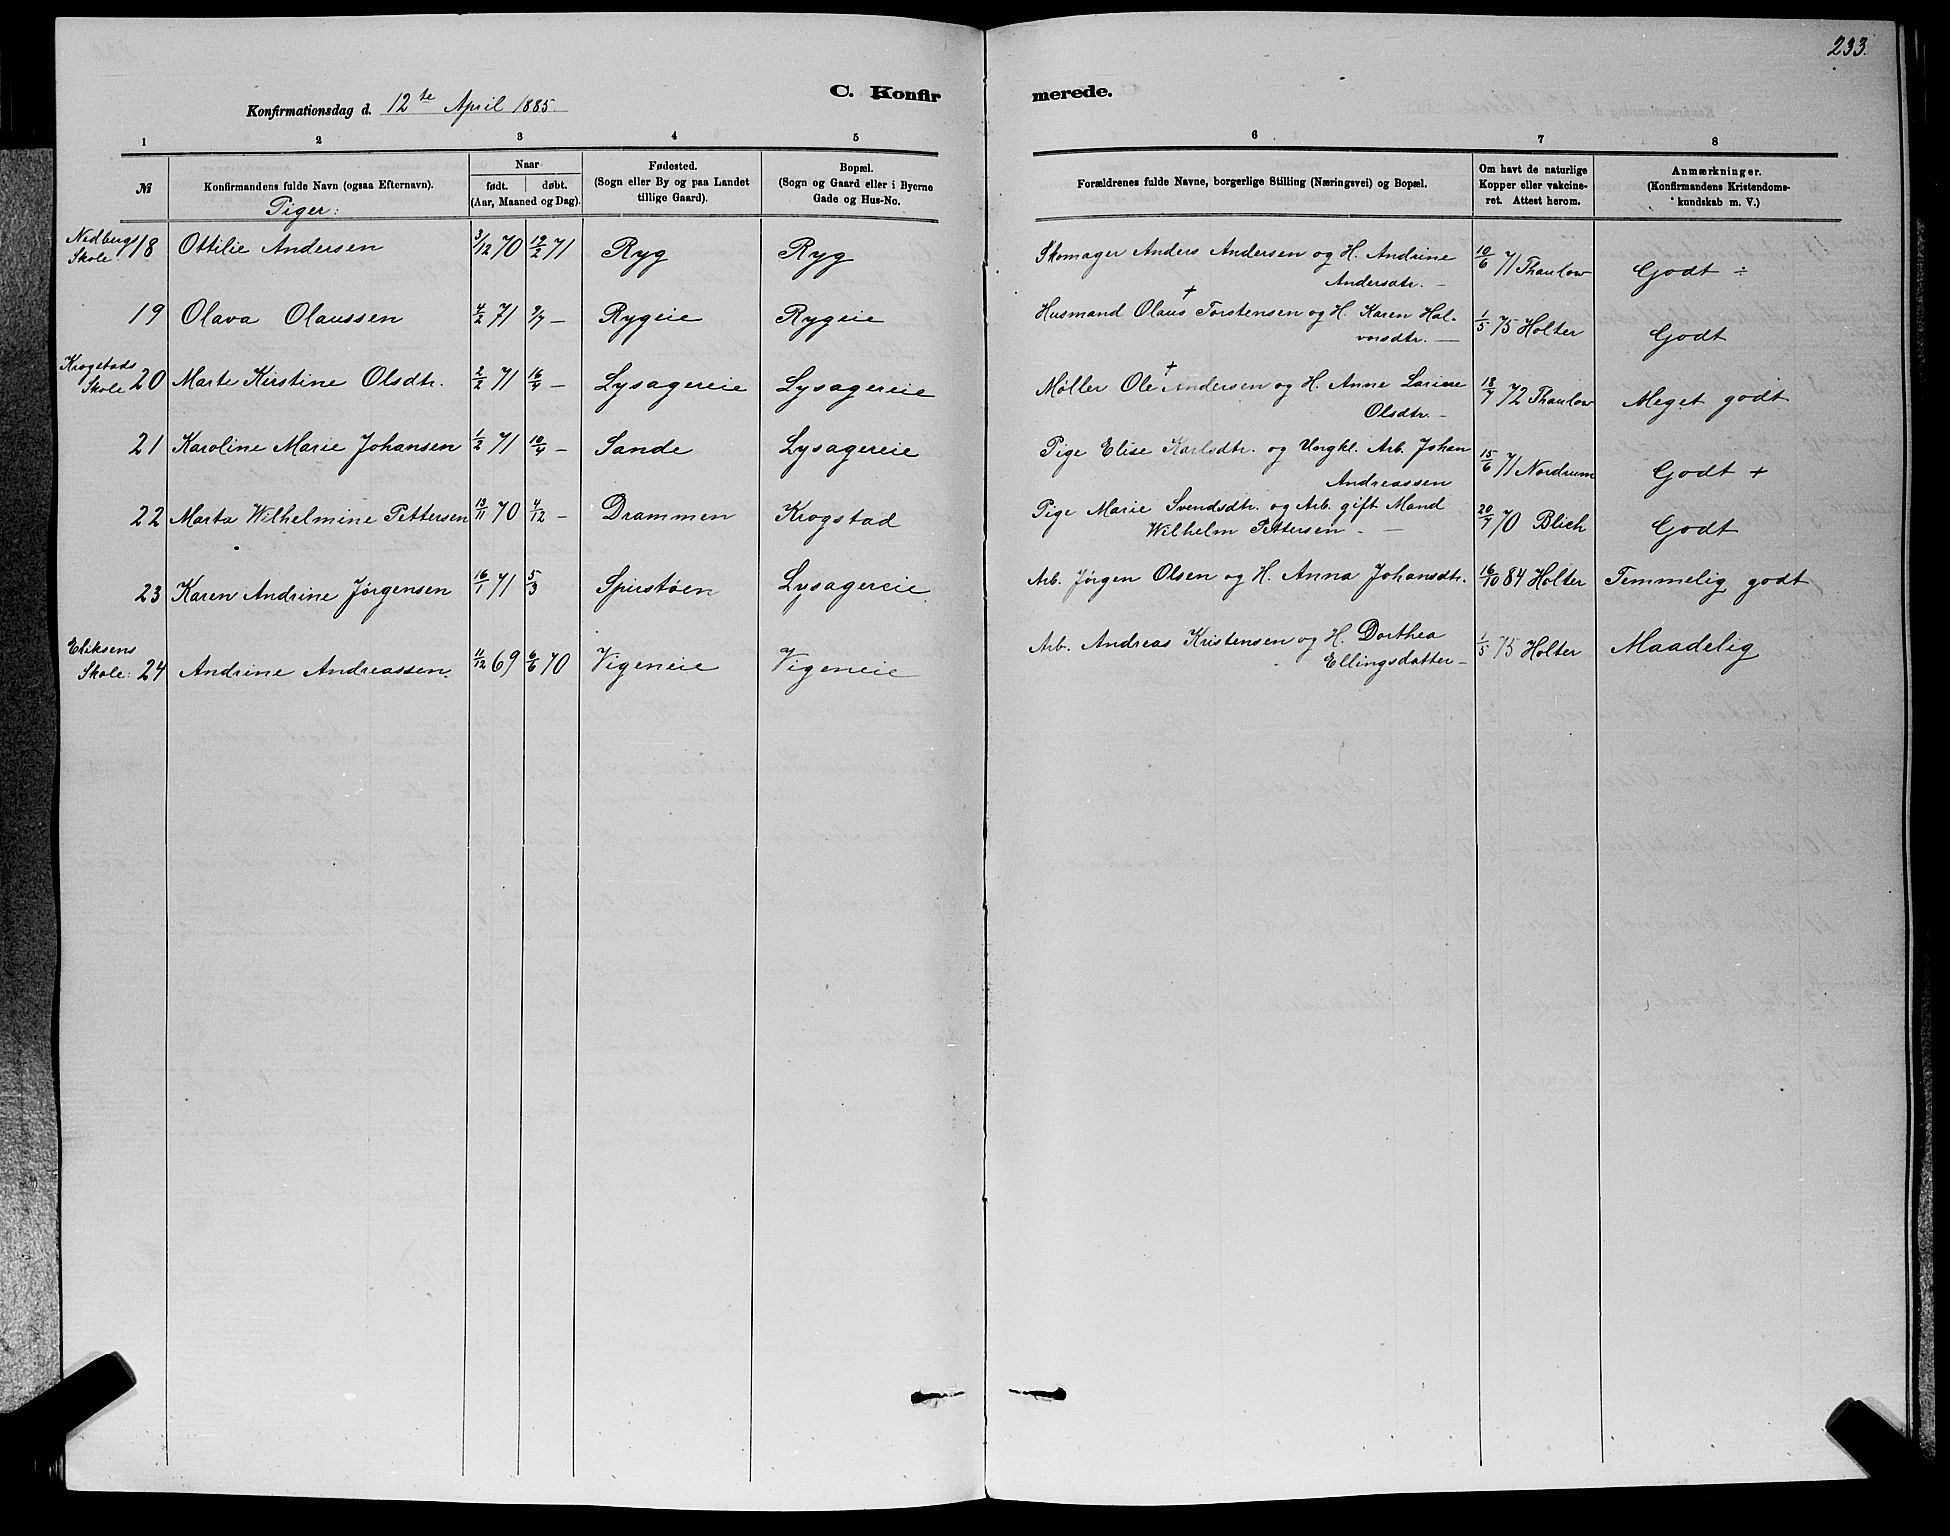 233.
C. Konfirmerede.
Konfirmationsdag d. 12te April 1885.
1 2 3 4 5 6 7 8
№ Konfirmandens fulde Navn (ogsaa Efternavn). Naar født. døbt. (Aar, Maaned og Dag). Fødested. (Sogn eller By og paa Landet tillige Gaard). Bopæl. (Sogn og Gaard eller i Byerne Gade og Hus-No. Forældrenes fulde Navne, borgerlige Stilling (Næringsvei) og Bopæl. Om havt de naturlige Kopper eller vakcineret. Attest herom. Anmærkninger. (Konfirmandens Kristendomskundskab m. V.)
Piger:
Nedbergs Skole 18 Ottilie Andersen 3/12 70 19/2 71 Ryg Ryg Skomager Anders Andersen og H. Andrine Andersdtr. — 10/6 71 Thaulow Godt ÷
19 Olava Olaussen 4/2 71 9/7 — Rygeie Rygeie Husmand Olaus † Torstensen og H. Karen Halvorsdtr. — 1/5 75 Holter Godt
Krogstads Skole 20 Marte Kirstine Olsdtr. 2/2 71 16/4 — Lysagereie Lysagereie Møller Ole † Andersen og H. Anne Larine Olsdtr. — 18/7 72 Thaulow Meget godt
21 Karoline Marie Johansen 1/2 71 10/4 — Sande Lysagereie Pige Elise Karlsdtr. og Ungkl. Arb. Johan Andreassen 15/6 71 Nordrum Godt +
22 Marta Wilhelmine Pettersen 13/11 70 4/12 — Drammen Krogstad Pige Marie Svendsdtr. og Arb. gift Mand Wilhelm Pettersen — 20/7 70 Blich Godt
23 Karen Andrine Jørgensen 16/1 71 5/3 Spirstøen Lysagereie Arb. Jørgen Olsen og H. Anna Johansdtr. 16/10 84 Holter Temmelig godt
Eriksens Skole: 24 Andrine Andreassen. 11/12 69 6/6 70 Vigeneie Vigeneie Arb. Andreas Kristensen og H. Dorthea Ellingsdatter — 1/5 75 Holter Maadelig